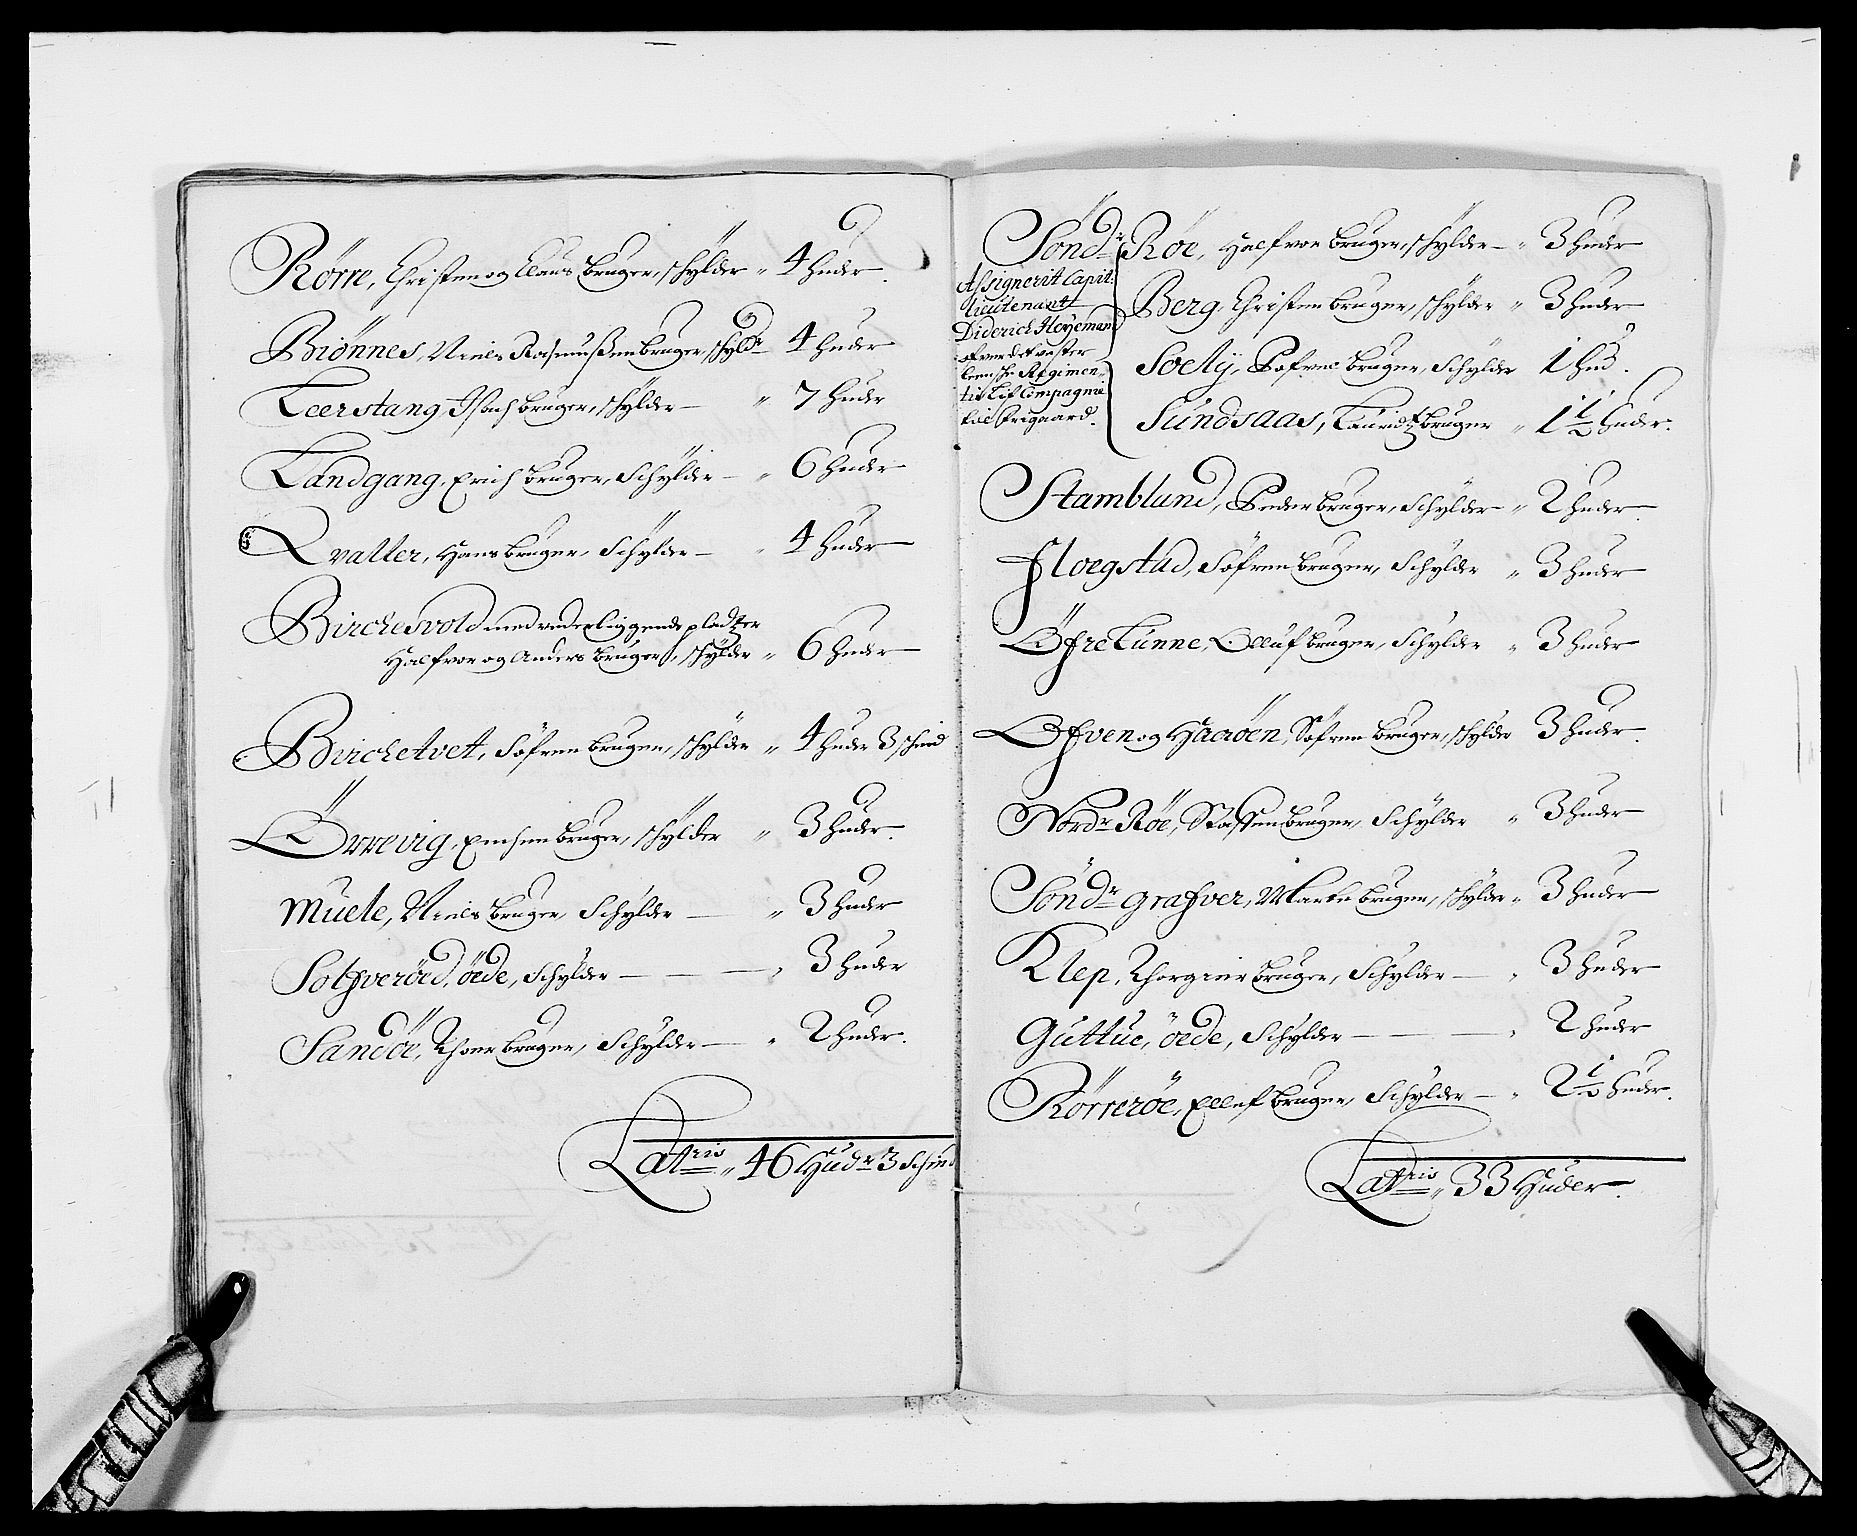 Rörre, Christen og Claus Bruger, schÿlder „ 4 huder.
Biönnes, Niels Rasmußen bruger, schÿldr 4 huder
Leerstang, Isach bruger, schÿlder — „ 7 huder
Landgang, Erich bruger, Schÿlder — „ 6 huder
Qvaller, Hans bruger, Schÿlder — „ 4 huder
Birchesvold med underliggende pladtzer
Halfvor og Anders bruger, schÿlder „ 6 huder
Birchetvet, Söfren bruger, schÿlder „ 4 huder 3 schind
Örrevig, bruger, schÿlder „ 3 huder.
Muele, Niels bruger, Schÿlder — „ 3 huder
Solfveröed, öede, Schÿlder — — — „ 3 huder
Sandöe, Thoer bruger, Schÿlder — „ 2 huder.
Latris „ 46 Hudr 3 Schind
Söndr Röe, Halfvor bruger, schÿlder — „ 3 huder
Assignerit Capit:
lieutenant
Diderich Heyeman
ofver det
Regimen„
tis Lif Compagnie
til Frigaard.
Berg, Christen bruger, schÿlder „ 3 huder
Soelÿ, Söfren bruger, Schÿlder 1 hud.
Sundsaas, Lauridtz bruger „ 1 1/2 huder.
Stamblund, Peder bruger, Schÿlder — „ 2 huder.
Floegstad, Söfren bruger, Schÿlder „ 3 huder
Öfre Tunne, Olluf bruger, Schÿlder „ 3 huder
Öfven og Haeröen, Söfren bruger, schÿlder 3 huder.
Nordr Röe, Staffen bruger, Schÿlder „ 3 huder
Söndr Grafver, Marten bruger, schÿlder „ 3 huder
Klep, Thorgier bruger, Schÿlder — „ 3 huder
Guttue, öede, Schÿlder — — — „ 2 huder
Rörreröe, Ellef bruger, Schÿlder — „ 2 1/2 huder.
Latris „ 33 Huder.